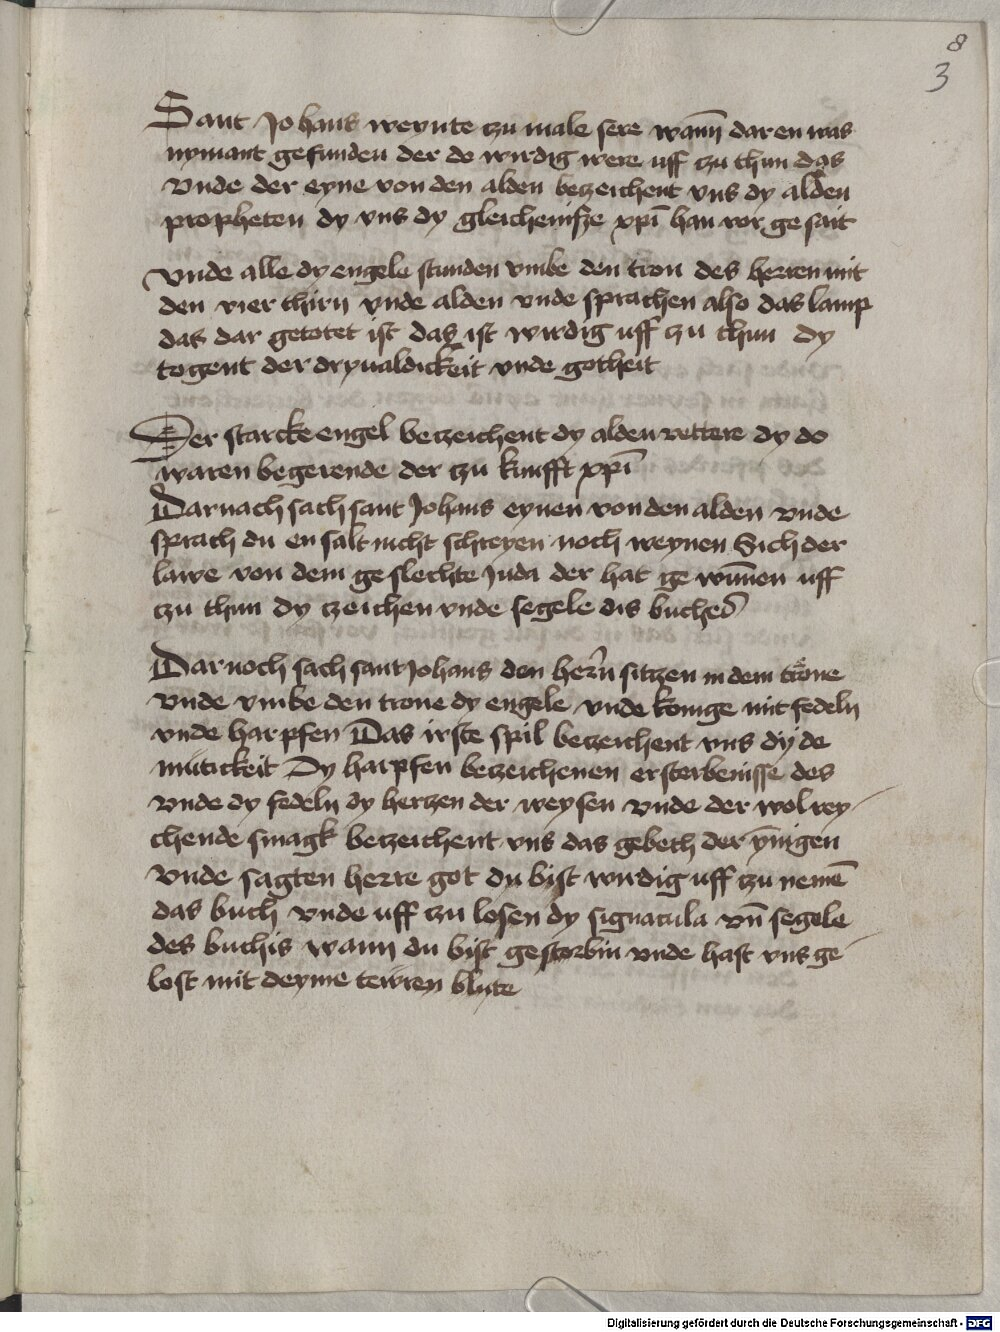 8
3
Sant Johans weynte czu male sere wann̄ dar en was
nymant gefunden der do wirdig were uff czu thun das
Vnde der eyne von den alden beczeichent vns dy alden
propheten dy vns dy gleichenisze xp̄i han vor ge sait
Vnde alle dy engele stunden vmbe den tron des herren mit
den vier thirn vnde alden vnde sprachen also das lamp
das dar getotet ist das ist wirdig uff czu thun dy
togent der dryualdickeit vnde gotheit
Der starcke engel beczeichent dy alden vettere dy do
waren begerende der czu kunfft xp̄i
Darnach sach sant Johans eynen von den alden vnde
sprach du en salt nicht schreyen noch weynen Sich der
lawe von dem ge slechte Juda der hat ge wūnen uff
czu thun dy czeichen vnde segele dis buches
Darnoch sach sant Johans den hern sitzen in dem trone
vnde vmbe den trone dy engele vnde konige mit fedeln
vnde harpfen Das irste spil beczeichent vns dy de
mutickeit Dy harpfen beczeichenen ersterbenisse des
vnde dy fedeln dy hertzen der weysen vnde der wol rey
chende smagk beczeichent vns das gebeth der ynigen
Vnde sagten herre got du bist wirdig uff czu nemē
das buch vnde uff czu losen dy signacula vn̄ segele
des buchis wann du bist gestorbin vnde hast vns ge
lost mit deyme tewren blute
Digitalisierung gefördert durch die Deutsche Forschungsgemeinschaft - DFG